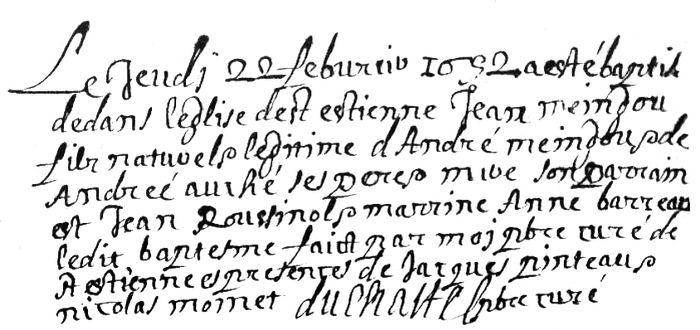 Le Jeudi 22 feburier 1652 a esté baptisé
dedans leglise de st estienne Jean meingou
fils naturel & legitime d André meingou & de
Andreé auché ses pere & mere son parrain
est Jean Roussinol & marrine Anne barreau
ledit baptesme faict par moi pbre curé de
st estienne es presences de Jacques pinteau &
nicolas moinet duchaste pbre curé